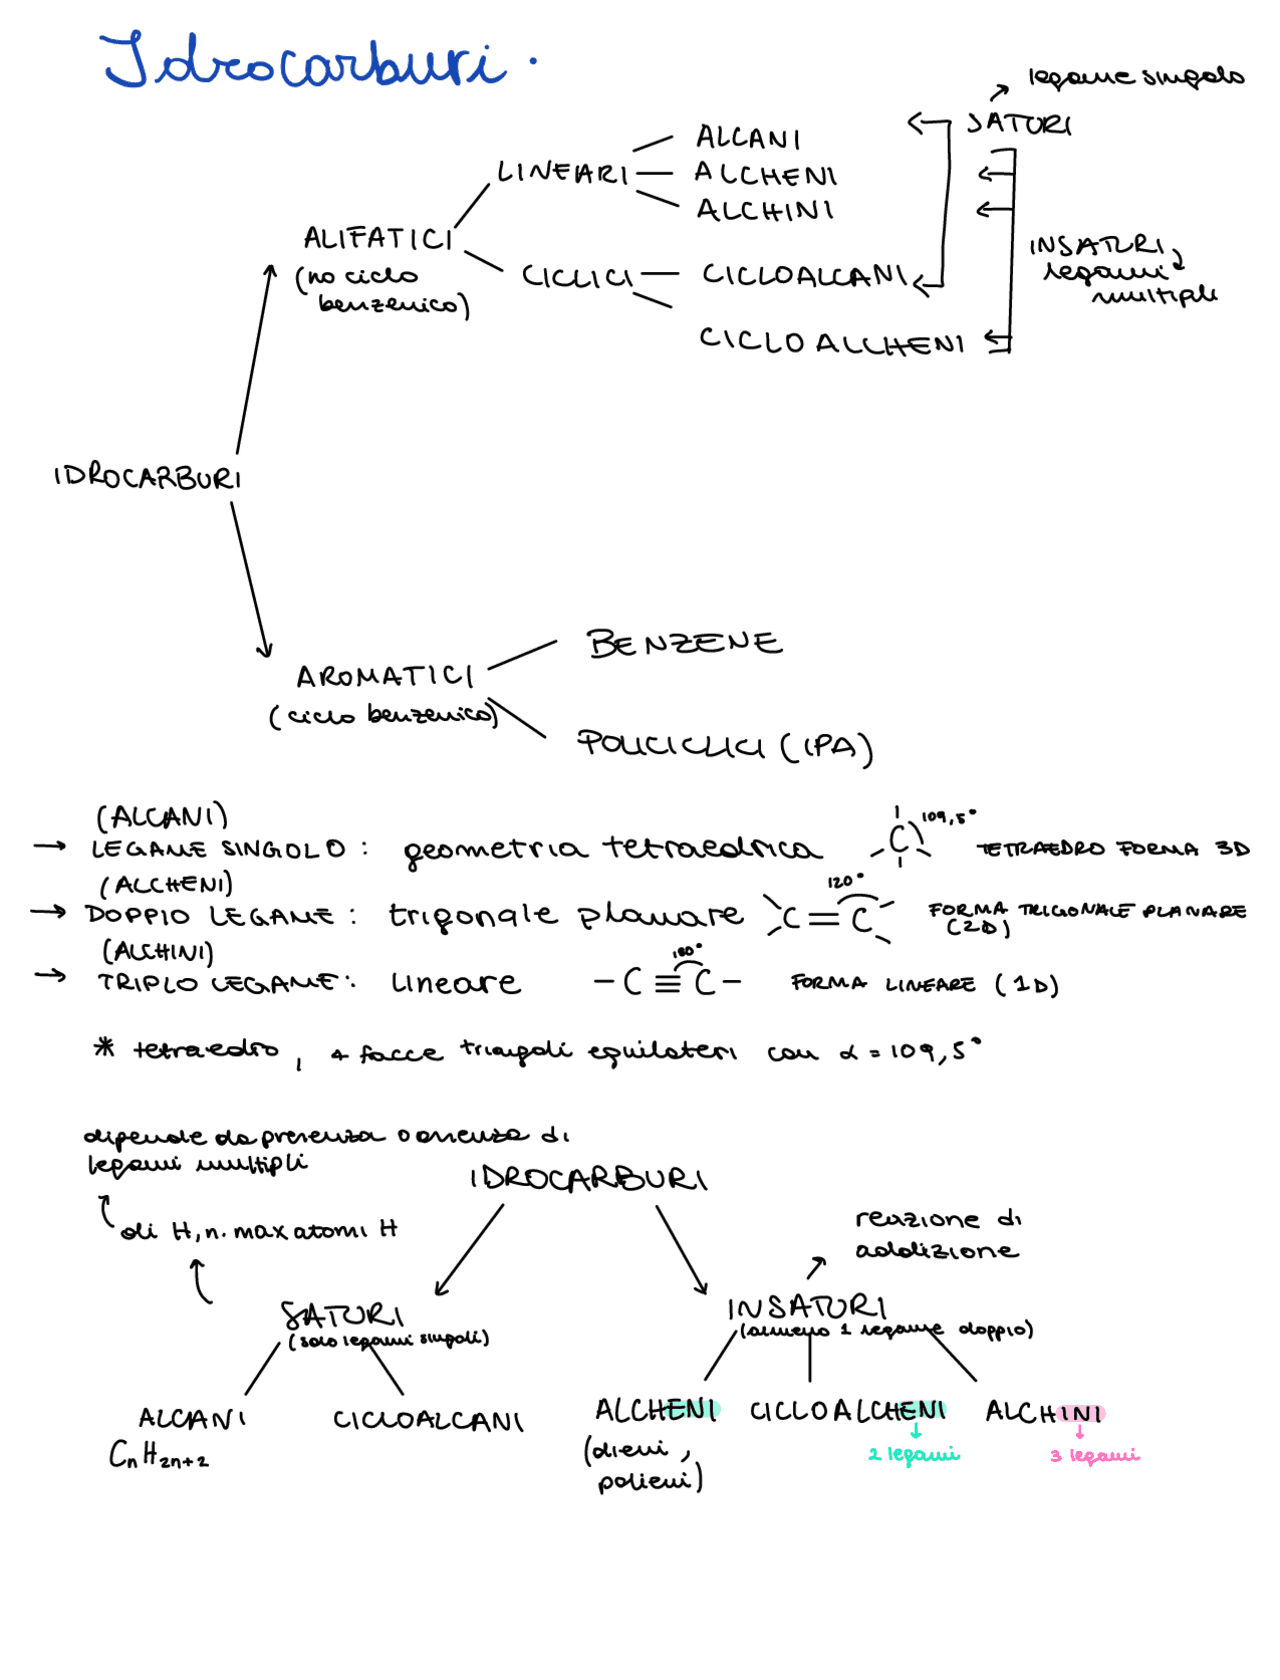 Idrocarburi.
legame singolo
SATURI
ALCANI
LINEARI
ALCHENI
ALCHINI
ALIFATICI
(no ciclo
benzenico)
INSATURI
legami
multipli
CICLICI
CICLOALCANI
CICLOALCHENI
IDROCARBURI
BENZENE
AROMATICI
(ciclo benzenico)
POLICICLICI (IPA)
(ALCANI)
→ LEGAME SINGOLO : geometria tetraedrica C 109,5° TETRAEDRO FORMA 3D
(ALCHENI)
→ DOPPIO LEGAME : trigonale planare C=C 120° FORMA TRIGONALE PLANARE
(2D)
(ALCHINI)
→ TRIPLO LEGAME : lineare -C≡C- 180° FORMA LINEARE (1D)
* tetraedro, 4 facce triangoli equilateri con α = 109,5°
dipende da presenza o assenza di
legami multipli
IDROCARBURI
di H, n. max atomi H
reazione di
addizione
SATURI
(solo legami singoli)
INSATURI
(almeno 1 legame doppio)
ALCANI
CICLOALCANI
ALCHENI
CICLOALCHENI
ALCHINI
CnH2n+2
(dieni,
polieni)
2 legami
3 legami